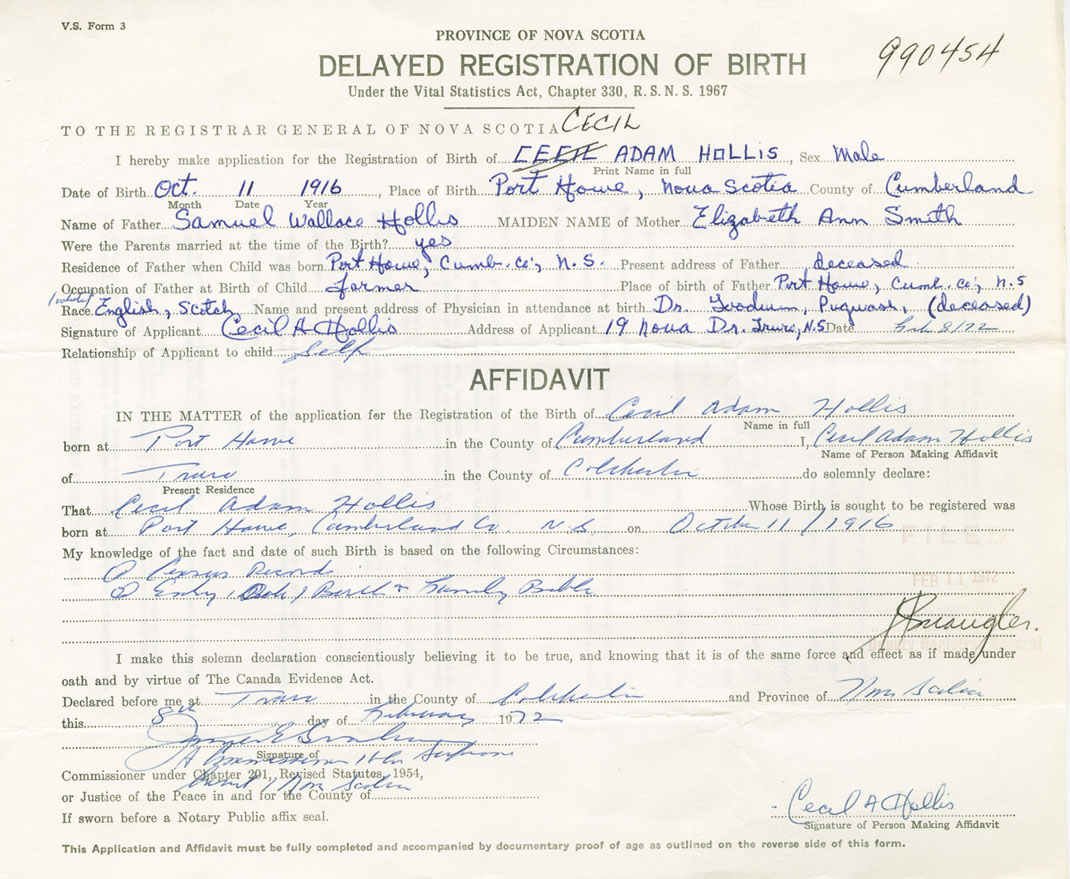 V.S. Form 3
PROVINCE OF NOVA SCOTIA
990454
DELAYED REGISTRATION OF BIRTH
Under the Vital Statistics Act, Chapter 330, R.S.N.S. 1967
TO THE REGISTRAR GENERAL OF NOVA SCOTIA CECIL
I hereby make application for the Registration of Birth of CECIL ADAM HOLLIS, Sex Male
Print Name in full
Date of Birth Oct. 11 1916, Place of Birth Port Howe, Nova Scotia County of Cumberland
Month Date Year
Name of Father Samuel Wallace Hollis MAIDEN NAME of Mother Elizabeth Ann Smith
Were the Parents married at the time of the Birth? yes
Residence of Father when Child was born Port Howe, Cumb. Co., N.S. Present address of Father deceased
Occupation of Father at Birth of Child farmer Place of birth of Father Port Howe, Cumb. Co., N.S
(white)
Race English, Scotch Name and present address of Physician in attendance at birth Dr. Pugwash, (deceased)
Signature of Applicant Cecil A Hollis Address of Applicant 19 Nova Dr. Truro, N.S Date Feb 8/72
Relationship of Applicant to child Self
AFFIDAVIT
IN THE MATTER of the application for the Registration of the Birth of Cecil Adam Hollis
Name in full
born at Port Howe in the County of Cumberland I, Cecil Adam Hollis
Name of Person Making Affidavit
of Truro in the County of Colchester do solemnly declare:
Present Residence
That Cecil Adam Hollis Whose Birth is sought to be registered was
born at Port Howe, Cumberland Co N.S. on October 11/1916
FILED
My knowledge of the fact and date of such Birth is based on the following Circumstances:
Census Records
FEB 11 1972
Entry Birth Family Bible
I make this solemn declaration conscientiously believing it to be true, and knowing that it is of the same force and effect as if made under
oath and by virtue of The Canada Evidence Act.
Declared before me at Truro in the County of Colchester and Province of Nova Scotia
this 8th day of February 1972
A Commissioner Supreme
Signature of
Commissioner under Chapter 291, Revised Statutes, 1954,
Court Nova Scotia
or Justice of the Peace in and for the County of
Cecil A Hollis
If sworn before a Notary Public affix seal.
Signature of Person Making Affidavit
This Application and Affidavit must be fully completed and accompanied by documentary proof of age as outlined on the reverse side of this form.